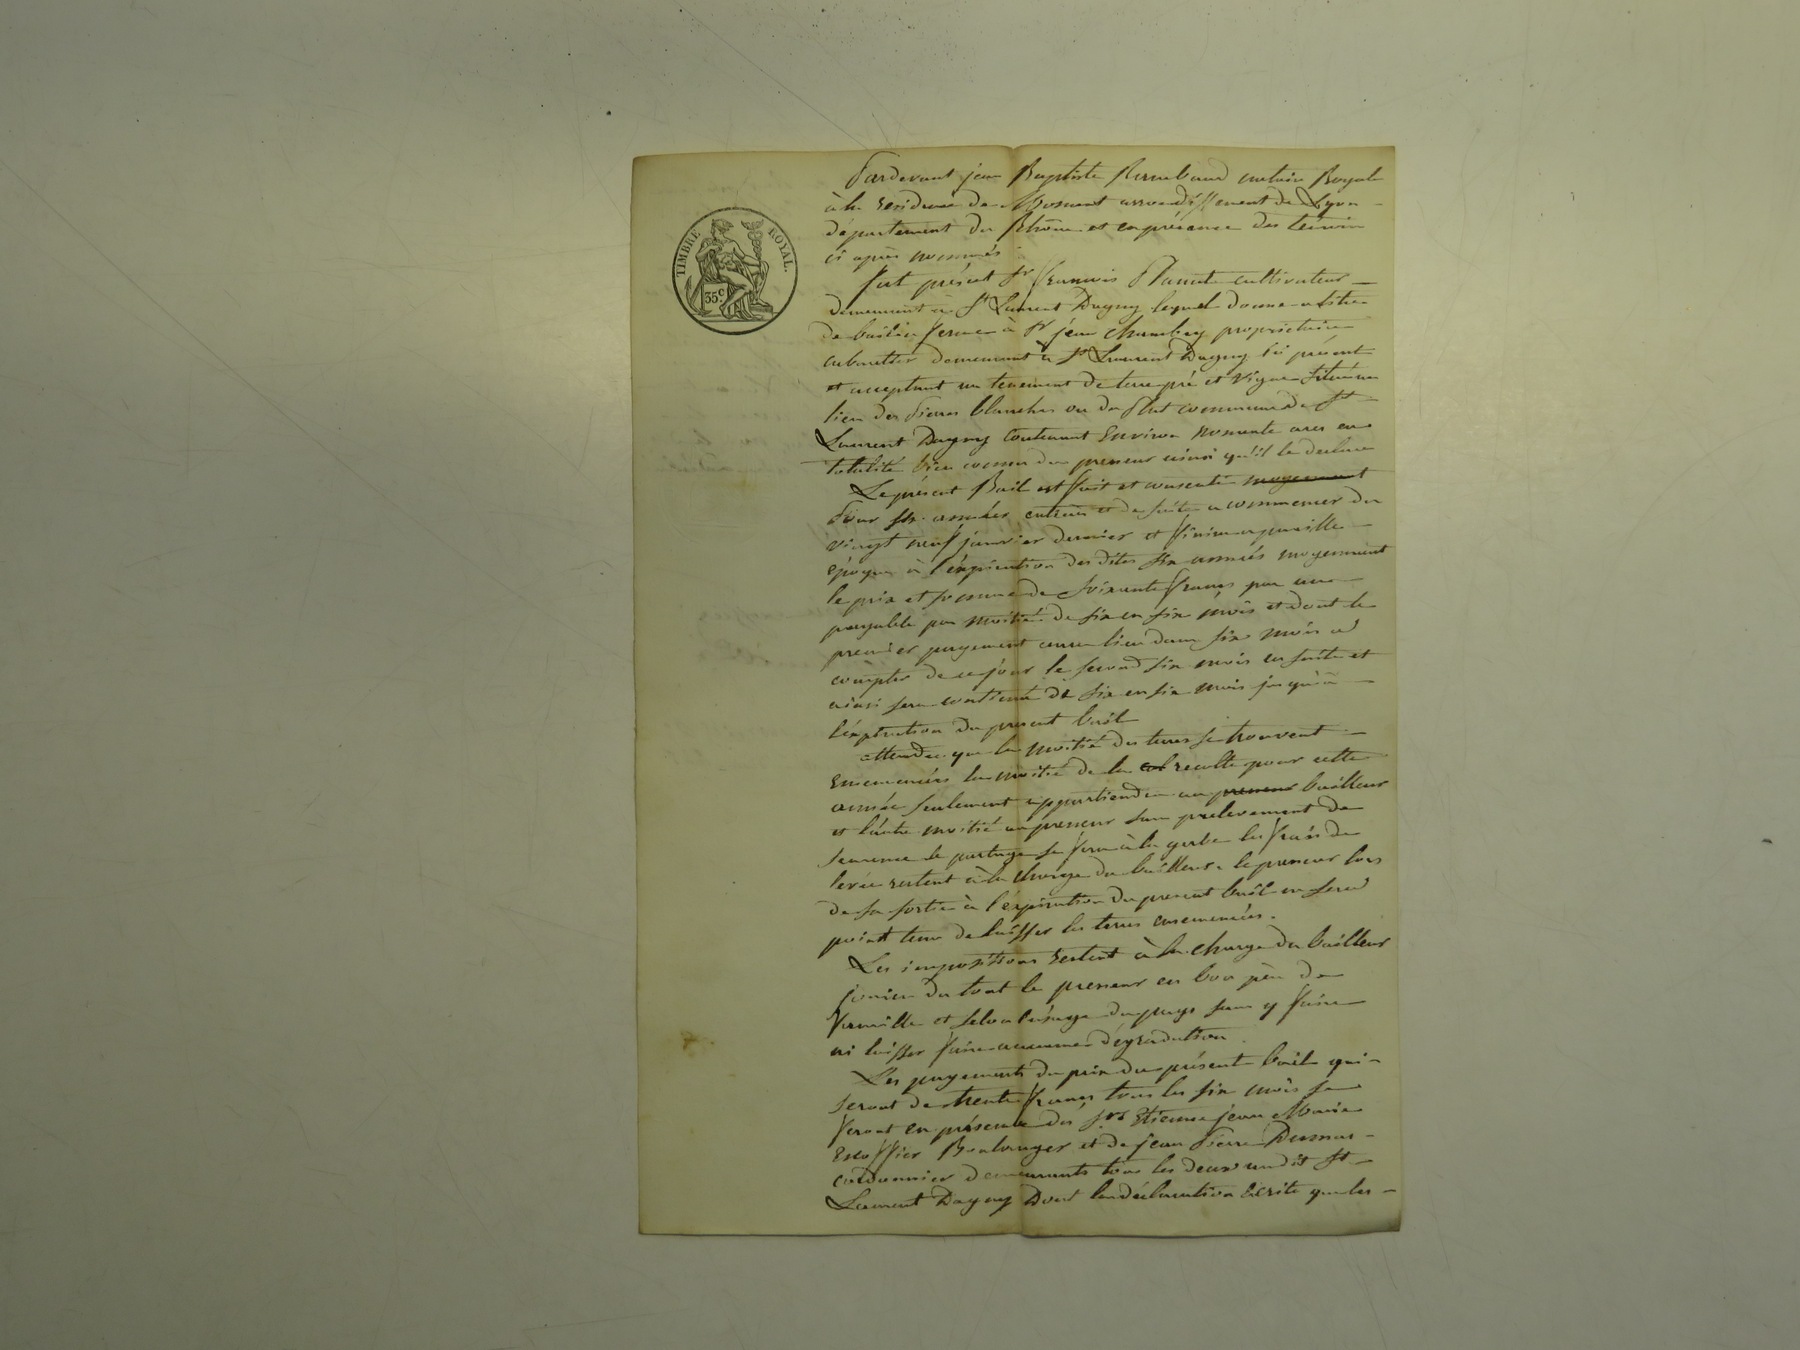 TIMBRE ROYAL.
35c
Pardevant jean Baptiste Rimbaud notaire Royale
à la residence de Mornant arrondissement de Lyon
département du Rhône et en présence des témoin
ci après nommés
fut présent Sr françois cultivateur
demeurant à St Laurent Dagny lequel donne a titre
de bail à ferme à Sr jean Chambry propriétaire
cabaretier demeurant à St Laurent Dagny ici présent
et acceptant un tenement de terre pré et vigne situé au
lieu des Pierres blanches ou du Plat commune de St
Laurent Dagny contenant environ nonente ares en
totalité bien connu du preneur ainsi qu'il le declare
Le présent Bail est fait et consenti moyennant
Pour six années entières et de suite a commencer du
vingt neuf janvier dernier et finir a pareille
époque à l'éxpiration des dites six années moyennant
le prix et somme de soixante francs par an
payable par moitié de six en six mois et dont le
premier payement aura lieu dans six mois a
compter de ce jour le second six mois en suite et
ainsi sera continué de six en six mois jusqu'à
l'éxpiration du present bail
attendu que la moitié des terres se trouvent
ensemencées la moitié de la recolte pour cette
année seulement appartiendra au preneur bailleur
et l'autre moitié au preneur sans prelevement de
semence le partage se fera à la gerbe les frais de
levée restent à la charge du bailleur. le preneur lors
de sa sortie à l'éxpiration du present bail ne sera
point tenu de laisser les terres ensemencées.
Les impositions restent à la charge du bailleur
jouira du tout le preneur en bon père de
famille et selon l'usage du pays sans y faire
ni laisser faire aucune dégradation
Les payements du prix du présent bail qui
seront de trente francs tous les six mois se
feront en présence des Srs Etienne jean Marie
Escoffier Boulanger et de jean Pierre Dumas
cordonnier demeurants tous les deux au dit St
Laurent Dagny Dont la déclaration écrite que les